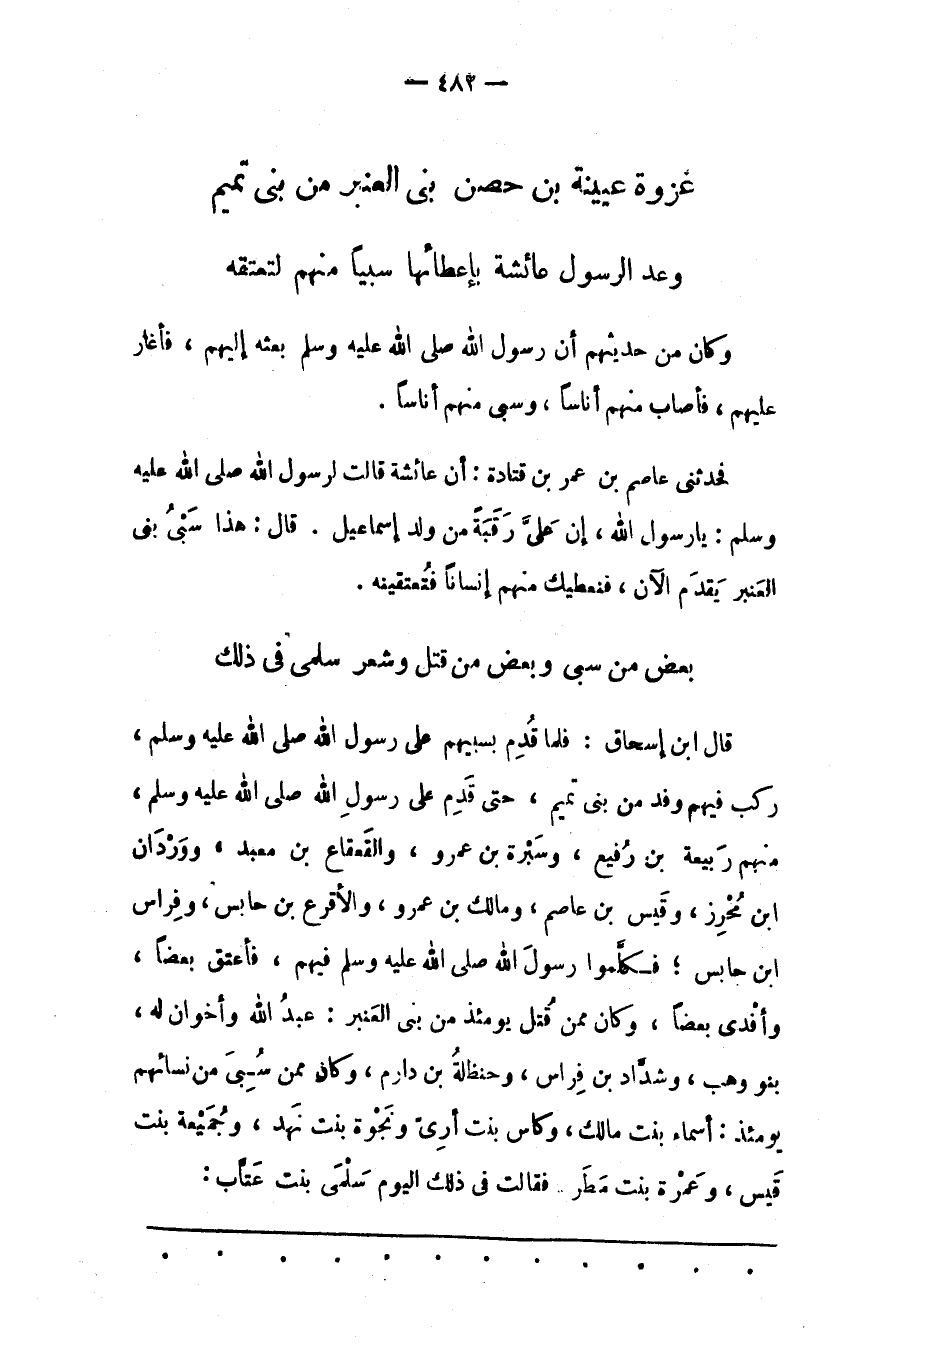 — ٤٨٢ —
غزوة عيينة بن حصن بنى العنبر من بنى تميم
وعد الرسول عائشة بإعطائها سبياً منهم لتعتقه
وكان من حديثهم أن رسول الله صلى الله عليه وسلم بعثه إليهم ، فأغار
عليهم ، فأصاب منهم أناساً ، وسبى منهم أناساً .
فحدثنى عاصم بن عمر بن قتادة : أن عائشة قالت لرسول الله صلى الله عليه
وسلم : يارسول الله ، إن عَلىَّ رَقَبَةً من ولد إسماعيل . قال : هذا سَبْىُ بنى
العَنبر يَقدَم الآن ، فنعطيك منهم إنساناً فتُعتقينه .
بعض من سبى وبعض من قتل وشعر سلمى فى ذلك
قال ابن إسحاق : فلما قُدِم بسبيهم على رسول الله صلى الله عليه وسلم ،
ركب فيهم وفد من بنى تميم ، حتى قَدِم على رسولِ الله صلى الله عليه وسلم ،
منهم رَبيعة بن رُفيع ، وسَبْرة بن عمرو ، والقَعقاع بن معبد ، ووَرْدَان
ابن مُحْرِز ، وقَيس بن عاصم ، ومالك بن عمرو ، والأقرع بن حابس ، وفِراس
ابن حابس ؛ فـكلَّموا رسولَ الله صلى الله عليه وسلم فيهم ، فأعتق بعضاً ،
وأفْدى بعضاً ، وكان ممن قُتل يومئذ من بنى العَنبر : عبدُ الله وأخوان له ،
بنو وهب ، وشدَّاد بن فِراس ، وحنظلةُ بن دارم ، وكان ممن سُـبِىَ من نسائهم
يومئذ : أسماء بنت مالك ، وكاس بنت أرِىّ ونَجْوة بنت نَهد ، وجُمَيْعة بنت
قَيس ، وعَمْرة بنت مَطَر .. فقالت فى ذلك اليوم سَلْمَى بنت عَتاَّب :